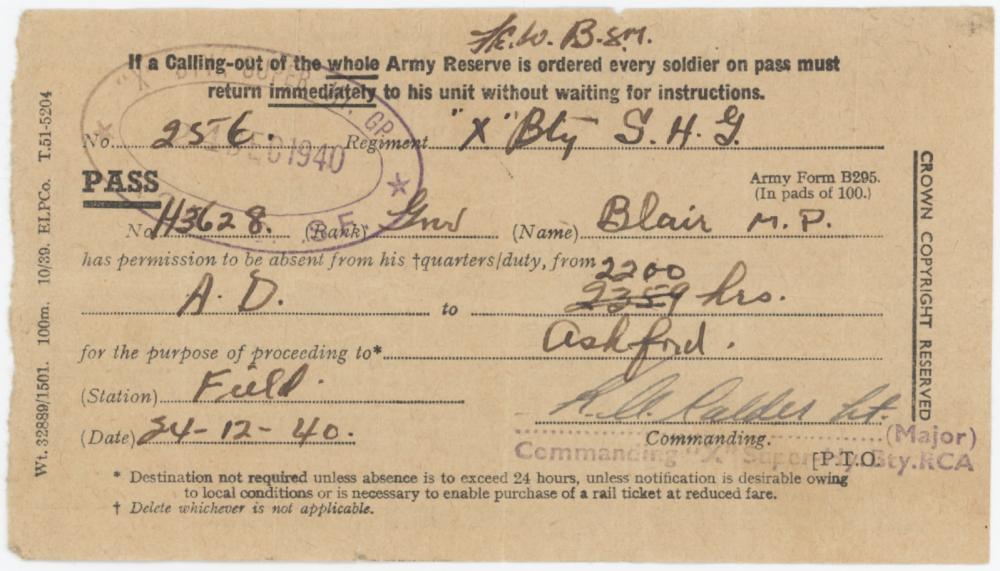 B.S.M.
If a Calling-out of the whole Army Reserve is ordered every soldier on pass must
return immediately to his unit without waiting for instructions.
No. 256. Regiment "X" Bty S. H. G.
DEC 1940
PASS
Army Form B295.
(In pads of 100.)
No. H3628. (Rank) Gnr (Name) Blair M. P.
has permission to be absent from his †quarters/duty, from
2200
A. D. to 2359 hrs.
for the purpose of proceeding to* Ashford.
(Station) Field.
(Date) 24-12-40.
Calder Lt.
Commanding. (Major)
Commanding "X" Super Bty.RCA
[P.T.O.
* Destination not required unless absence is to exceed 24 hours, unless notification is desirable owing
to local conditions or is necessary to enable purchase of a rail ticket at reduced fare.
† Delete whichever is not applicable.
Wt. 32889/1501. 100m. 10/39. ELPCo. T.51-5204
CROWN COPYRIGHT RESERVED